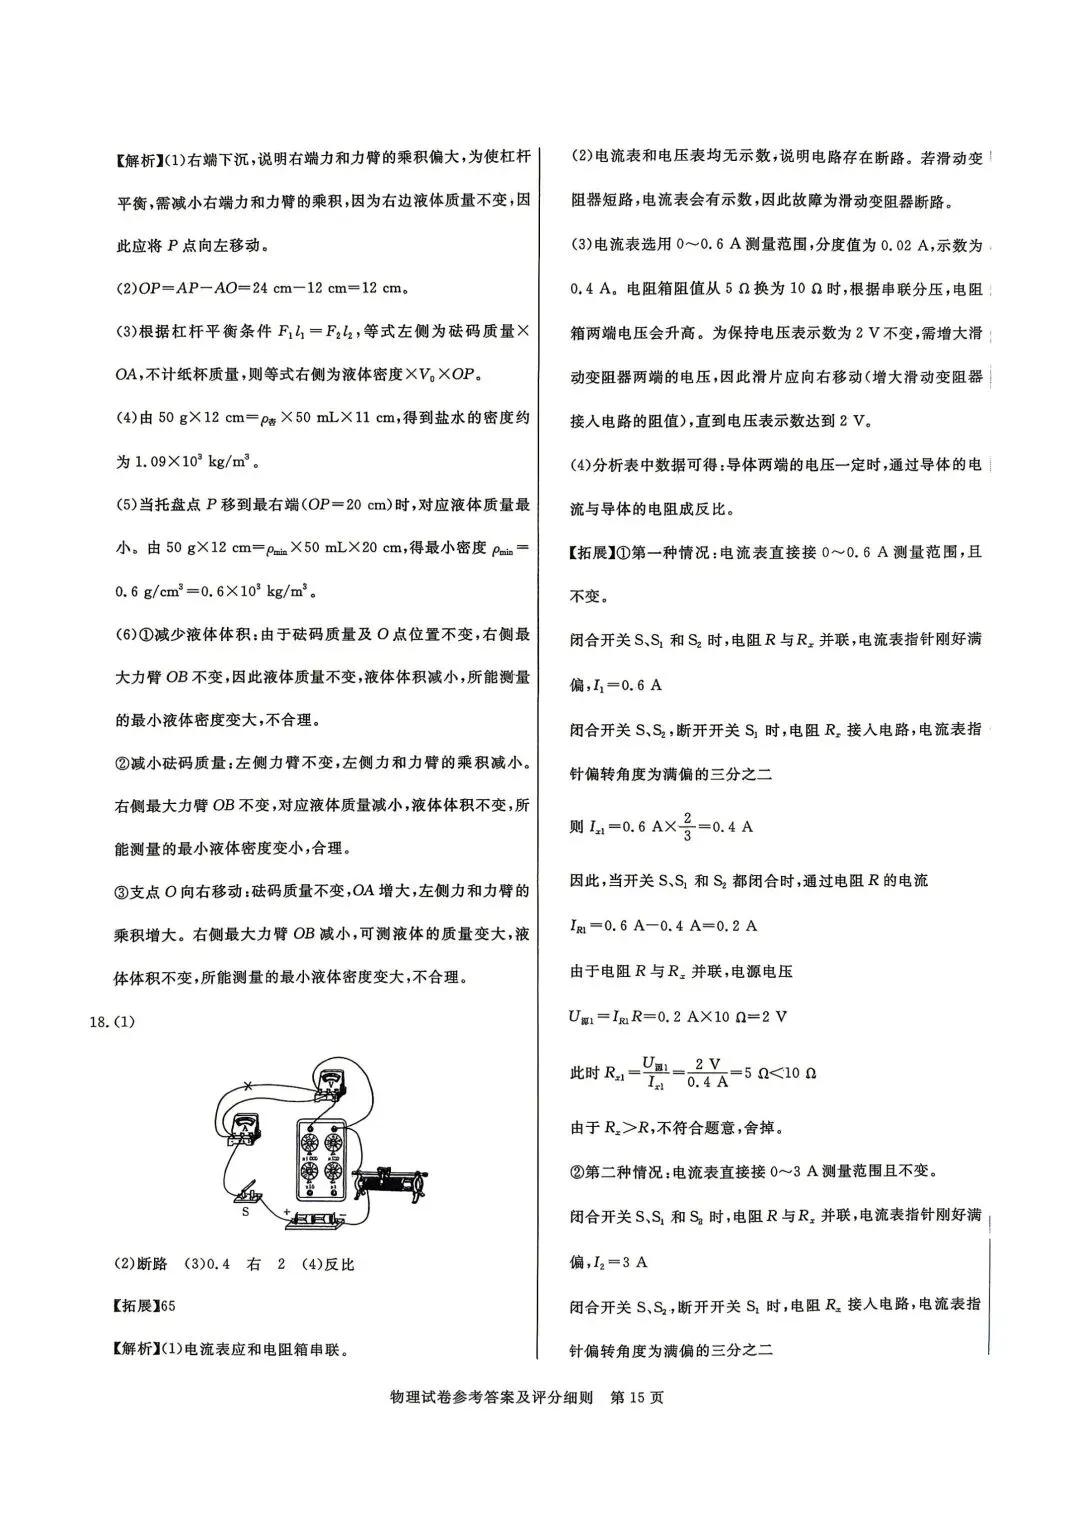 【解析】(1)右端下沉,说明右端力和力臂的乘积偏大,为使杠杆
平衡,需减小右端力和力臂的乘积,因为右边液体质量不变,因
此应将 P 点向左移动。
(2)OP=AP-AO=24 cm-12 cm=12 cm。
(3)根据杠杆平衡条件 F₁l₁=F₂l₂,等式左侧为砝码质量×
OA,不计纸杯质量,则等式右侧为液体密度×V₀×OP。
(4)由 50 g×12 cm=ρ杏×50 mL×11 cm,得到盐水的密度约
为 1.09×10³ kg/m³。
(5)当托盘点 P 移到最右端(OP=20 cm)时,对应液体质量最
小。由 50 g×12 cm=ρmin×50 mL×20 cm,得最小密度 ρmin=
0.6 g/cm³=0.6×10³ kg/m³。
(6)①减少液体体积:由于砝码质量及 O 点位置不变,右侧最
大力臂 OB 不变,因此液体质量不变,液体体积减小,所能测量
的最小液体密度变大,不合理。
②减小砝码质量:左侧力臂不变,左侧力和力臂的乘积减小。
右侧最大力臂 OB 不变,对应液体质量减小,液体体积不变,所
能测量的最小液体密度变小,合理。
③支点 O 向右移动:砝码质量不变,OA 增大,左侧力和力臂的
乘积增大。右侧最大力臂 OB 减小,可测液体的质量变大,液
体体积不变,所能测量的最小液体密度变大,不合理。
18.(1)
V
A
S
+
−
(2)断路 (3)0.4 右 2 (4)反比
【拓展】65
【解析】(1)电流表应和电阻箱串联。
(2)电流表和电压表均无示数,说明电路存在断路。若滑动变
阻器短路,电流表会有示数,因此故障为滑动变阻器断路。
(3)电流表选用 0~0.6 A 测量范围,分度值为 0.02 A,示数为
0.4 A。电阻箱阻值从 5 Ω 换为 10 Ω 时,根据串联分压,电阻
箱两端电压会升高。为保持电压表示数为 2 V 不变,需增大滑
动变阻器两端的电压,因此滑片应向右移动(增大滑动变阻器
接入电路的阻值),直到电压表示数达到 2 V。
(4)分析表中数据可得:导体两端的电压一定时,通过导体的电
流与导体的电阻成反比。
【拓展】①第一种情况:电流表直接接 0~0.6 A 测量范围,且
不变。
闭合开关 S、S₁ 和 S₂ 时,电阻 R 与 Rₓ 并联,电流表指针刚好满
偏,I₁=0.6 A
闭合开关 S、S₂,断开开关 S₁ 时,电阻 Rₓ 接入电路,电流表指
针偏转角度为满偏的三分之二
则 Iₓ₁=0.6 A×2/3=0.4 A
因此,当开关 S、S₁ 和 S₂ 都闭合时,通过电阻 R 的电流
I_R1=0.6 A-0.4 A=0.2 A
由于电阻 R 与 Rₓ 并联,电源电压
U源1=I_R1R=0.2 A×10 Ω=2 V
此时 Rₓ₁=U源1/Iₓ₁=2 V/0.4 A=5 Ω<10 Ω
由于 Rₓ>R,不符合题意,舍掉。
②第二种情况:电流表直接接 0~3 A 测量范围且不变。
闭合开关 S、S₁ 和 S₂ 时,电阻 R 与 Rₓ 并联,电流表指针刚好满
偏,I₂=3 A
闭合开关 S、S₂,断开开关 S₁ 时,电阻 Rₓ 接入电路,电流表指
针偏转角度为满偏的三分之二
物理试卷参考答案及评分细则 第 15 页